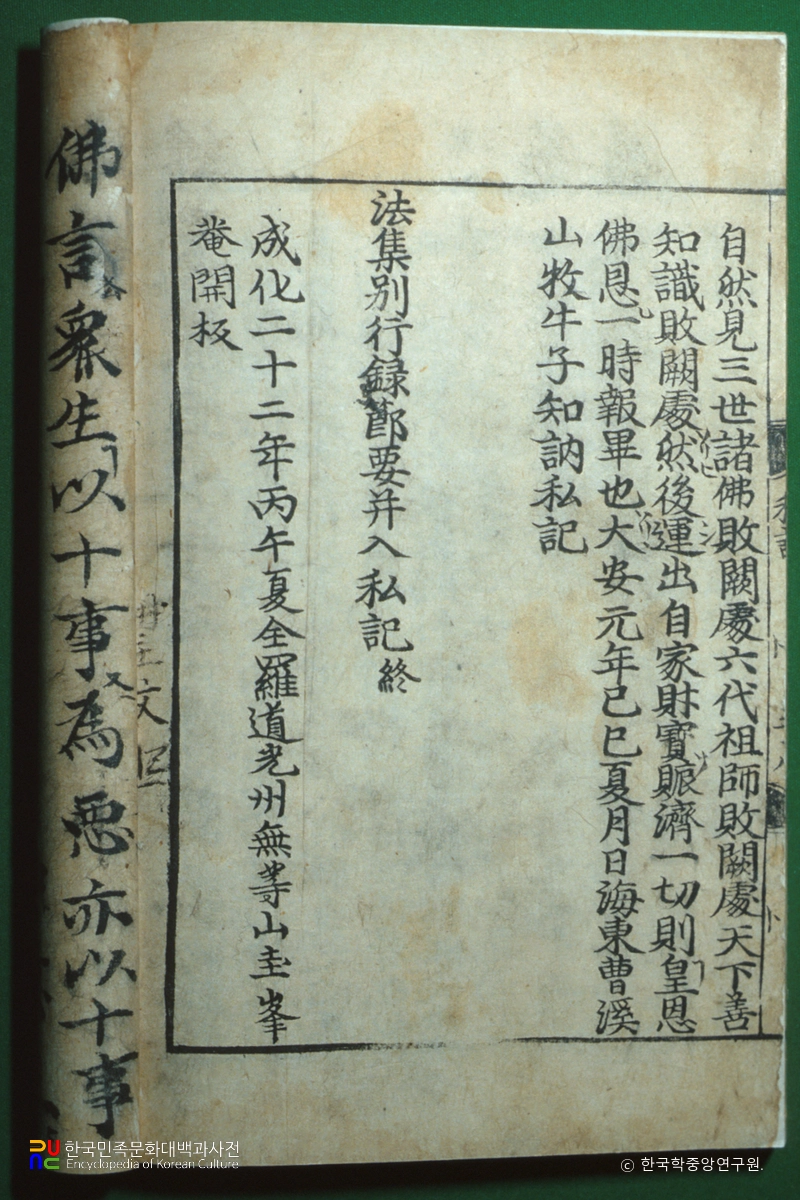 自然見三世諸佛敗闕處六代祖師敗闕處天下善
知識敗闕處然後運出自家財寶賑濟一切則皇恩
佛恩一時報畢也大安元年己巳夏月日海東曹溪
山牧牛子知訥私記
法集別行録節要并入私記 終
成化二十二年丙午夏全羅道光州無等山圭峯
菴開板
佛言衆生以十事為惡亦以十事
한국민족문화대백과사전
Encyclopedia of Korean Culture
© 한국학중앙연구원.